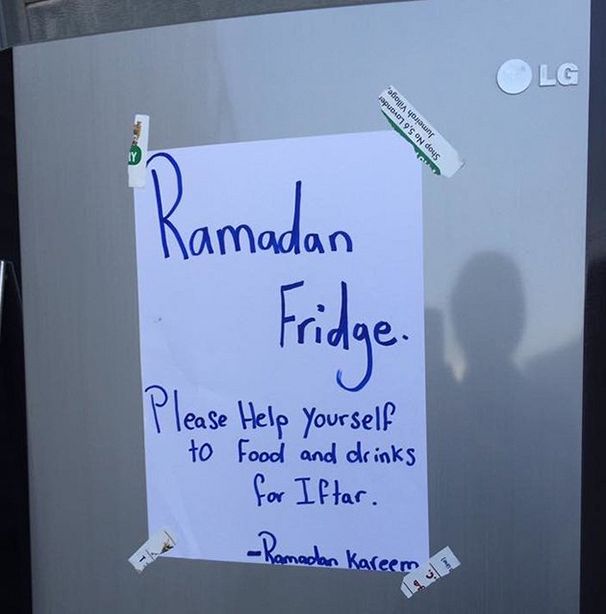 LG
Shop No 5,6 Lavander
Jumeirah Village,
NY
Ramadan
Fridge.
Please Help yourself
to Food and drinks
for Iftar.
-Ramadan Kareem